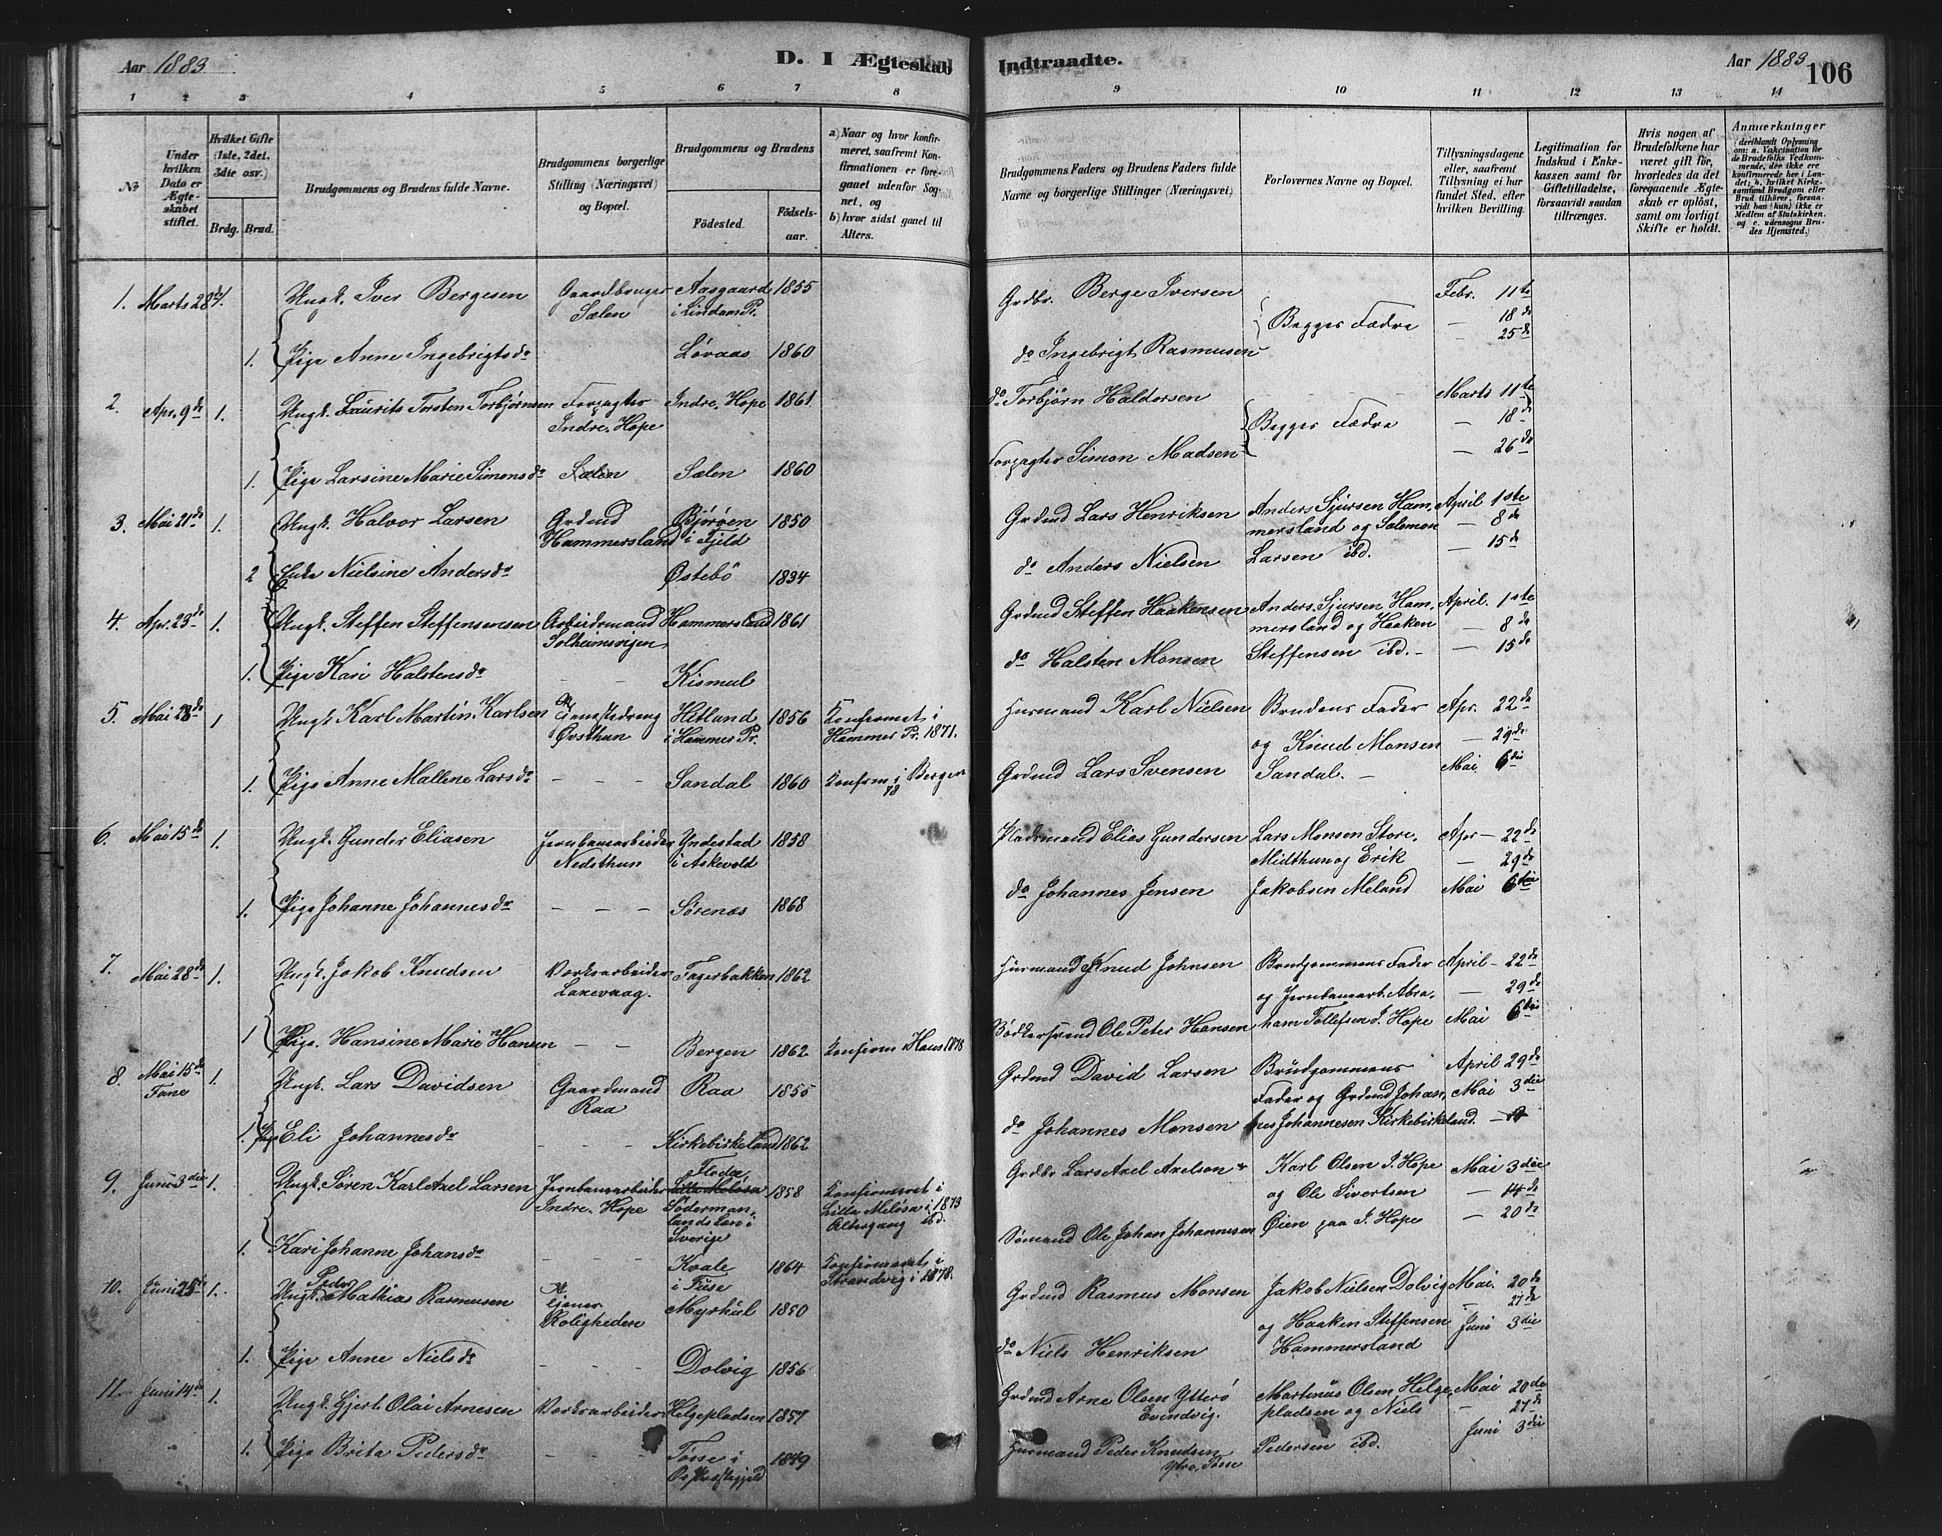 Aar 1883
D. I Ægteskab
Indtraadte.
Aar 1883
106
1 2 3 4 5 6 7 8
9 10 11 12 13 14
No
Under hvilken Dato er Ægteskabet stiftet.
Hvilket Gifte (1ste, 2det, 3die osv.)
Brdg. Brud.
Brudgommens og Brudens fulde Navne.
Brudgommens borgerlige Stilling (Næringsvei) og Bopæl.
Brudgommens og Brudens
Födested.
Födsels-aar.
a) Naar og hvor konfirmeret, saafremt Konfirmationen er foregaaet udenfor Sognet, og
b) hvor sidst gaaet til Alters.
Brudgommens Faders og Brudens Faders fulde Navne og borgerlige Stillinger (Næringsvei)
Forlovernes Navne og Bopæl.
Tillysningsdagene eller, saafremt Tillysning ei har fundet Sted, efter hvilken Bevilling.
Legitimation for Indskud i Enkekassen samt for Giftetilladelse, forsaavidt saadan tiltrænges.
Hvis nogen af Brudefolkene har været gift för, hvorledes da det foregaaende Ægteskab er oplöst, samt om lovligt Skifte er holdt.
Anmærkninger
(deriblandt Oplysning om: a. Vakcination for de Brudefolks Vedkommende, der ikke ere konfirmerede her i Landet; b. hvilket Kirkesamfund Brudgom eller Brud tilhörer, forsaavidt han (hun) ikke er Medlem af Statskirken, og c. udensogns Brudes Hjemsted.)
1. Marts 28de 1. Ungk. Iver Bergesen Gaardbruger Aasgaard 1855 Grdbr. Berge Iversen Febr. 11te
Sælen i Lindaas Pr. Begges Fædre — 18de
— 25de
1. Pige Anne Ingebrigtsdr Løvaas 1860 do Ingebrigt Rasmusen
2. Apr. 9de 1. Ungk. Laurits Torsten Torbjørnsen Forpagter Indre-Hope 1861 do Torbjørn Haldorsen Marts 11te
Indre-Hope Begges Fædre — 18de
— 26de
1. Pige Larsine Marie Simonsdr Sælen Sælen 1860 Forpagter Simon Madsen
3. Mai 21de 1. Ungk. Halvor Larsen Grdmd Bjørøen 1850 Grdmd Lars Henriksen Anders Sjursen Ham- April 1ste
Hammersland i Fjeld mersland og Salomon — 8de
2 Enke Nielsine Andersdr Østebö 1834 do Anders Nielsen Larsen ibd. — 15de
4. Apr. 23de 1. Ungk. Steffen Steffensensen Arbeidsmand Hammersland 1861 Grdmd Steffen Haakensen Anders Sjursen Ham- April. 1ste
Solheimsvigen mersland og Haaken — 8de
1. Pige Kari Halstensdr — — Kismul do Halsten Monsen Steffensen ibd. — 15de
5. Mai 28de 1 Ungk. Karl Martin Karlsen Tjenestedreng Hitland 1856 Konfirmeret i Husmand Karl Nielsen Brudens Fader Apr. 22de
Øvsthun i Hammer Pr. Hammer Pr. 1871. og Knud Monsen — 29de
1. Pige Anne Mallene Larsdr — — Sandal 1860 Konfirm i Bergen 78 Grdmd Lars Svensen Sandal. — Mai 6te
6. Mai 15de 1. Ungk. Gunder Eliasen Jernbanearbeider Yndestad 1858 Pladsmand Elias Gundersen Lars Monsen Store- Apr — 22de
Nedsthun i Askevold Midthun og Erik — 29de
1. Pige Johanne Johannesdr — — — Sørenæs 1868 do Johannes Jensen Jakobsen Meland Mai 6te
7. Mai 28de 1. Ungk. Jakob Knudsen Værksarbeider Fagerbakken 1862 Husmand Knud Johnsen Brudgommens Fader April — 22de
Laxevaag. og Jernbanearb. Abra- — 29de
1 Pige. Hansine Marie Hansen — — Bergen 1862 Konfirm i Haus 1878 Bödkersvend Ole Peter Hansen ham Tollefsen I. Hope Mai 6te
8. Mai 15de 1. Ungk. Lars Davidsen Gaardmand Raa 1855 Grdmd David Larsen Brudgommens April 29de
Fane Raa Fader og Grdmd Johan- Mai 3die
1. Pige Eli Johannesdr — — — Kirkebirkeland 1862 do Johannes Monsen nes Johannesen Kirkebirkeland. —
9. Juni 3die 1. Ungk. Sören Karl Axel Larsen Jernbanearbeider Floda 1858 Konfirmeret i Grdbr Lars Axel Axelson Karl Olsen I. Hope Mai 3die
Indre-Hope Lilla Melösa Söderman- landslän i Sverige Lilla Melösa i 1873 Altergang ibd. og Ole Sivertsen — 14de
1. Kari Johanne Johansdr — — — Kvale i Fuse 1864 Konfirmeret i Strandvig i 1878. Sømand Ole Johan Johannesen Øien paa I. Hope — 20de
10. Juni 25de 1. Ungk. Peder Mathias Rasmusen Tjener Myrkul 1850 Grdmd Rasmus Monsen Jakob Nielsen Dolvig Mai. 20de
Roligheden og Haaken Steffensen — 27de
1. Pige Anne Nielsdr — — — Dolvig 1856 do Niels Henriksen Hammersland Juni 3die
11. Juni 14de 1. Ungk. Gjert Olai Arnesen Værksarbeider Helgepladsen 1857 Grdmd Arne Olsen Ytterö Martinus Olsen Helge- Mai 20de
Evindvig. pladsen og Niels — 27de
1. Pige Brita Pedersdr — — — Tøsse i 1849 Husmand Peder Knudsen Pedersen ibd. Juni 3die
Os Præstegjeld Ytre-Tøsse